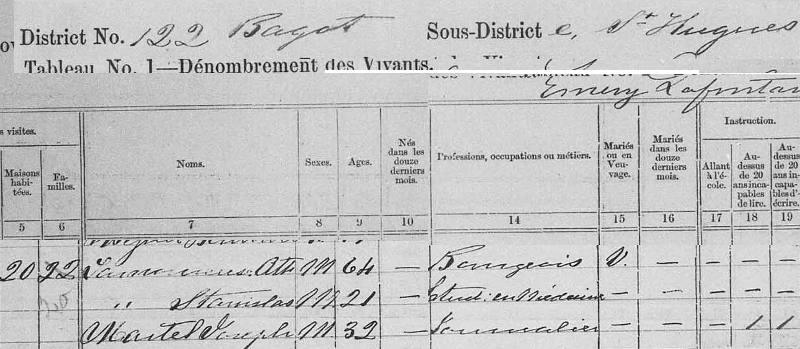 District No. 122 Bagot Sous-District e, St Hugues
Tableau No. 1—Dénombrement des Vivants.
Emery Lafontai
s visites.
Maisons habitées.
Familles.
Noms.
Sexes.
Ages.
Nés dans les douze derniers mois.
Professions, occupations ou métiers.
Mariés ou en Veuvage.
Mariés dans les douze derniers mois.
Instruction.
Allant à l'école.
Au-dessus de 20 ans incapables de lire.
Au-dessus de 20 ans incapables d'écrire.
5 6 7 8 9 10 14 15 16 17 18 19
20 22 Ath M 64 — Bourgeois V. — — — —
20 " Stanislas M 21 — Etud: en Médecine — — — — —
Martel Joseph M 32 — Journalier — — — 1 1